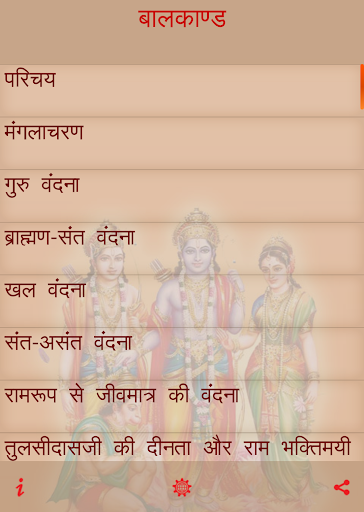 बालकाण्ड
परिचय
मंगलाचरण
गुरु वंदना
ब्राह्मण-संत वंदना
खल वंदना
संत-असंत वंदना
रामरूप से जीवमात्र की वंदना
तुलसीदासजी की दीनता और राम भक्तिमयी